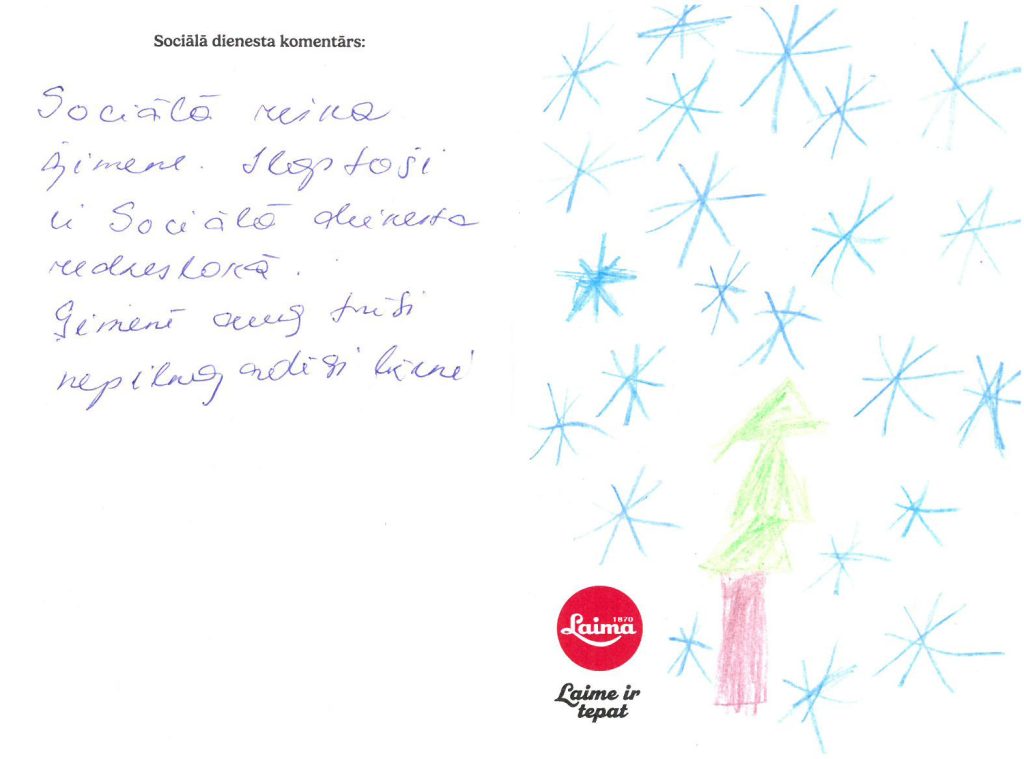 Sociālā dienesta komentārs:
Sociālā riska
ģimene. Ilgstoši
ir Sociālā dienesta
redzeslokā.
Ģimenē aug trīs
nepilngadīgi bērni
1870
Laima
Laime ir
tepat